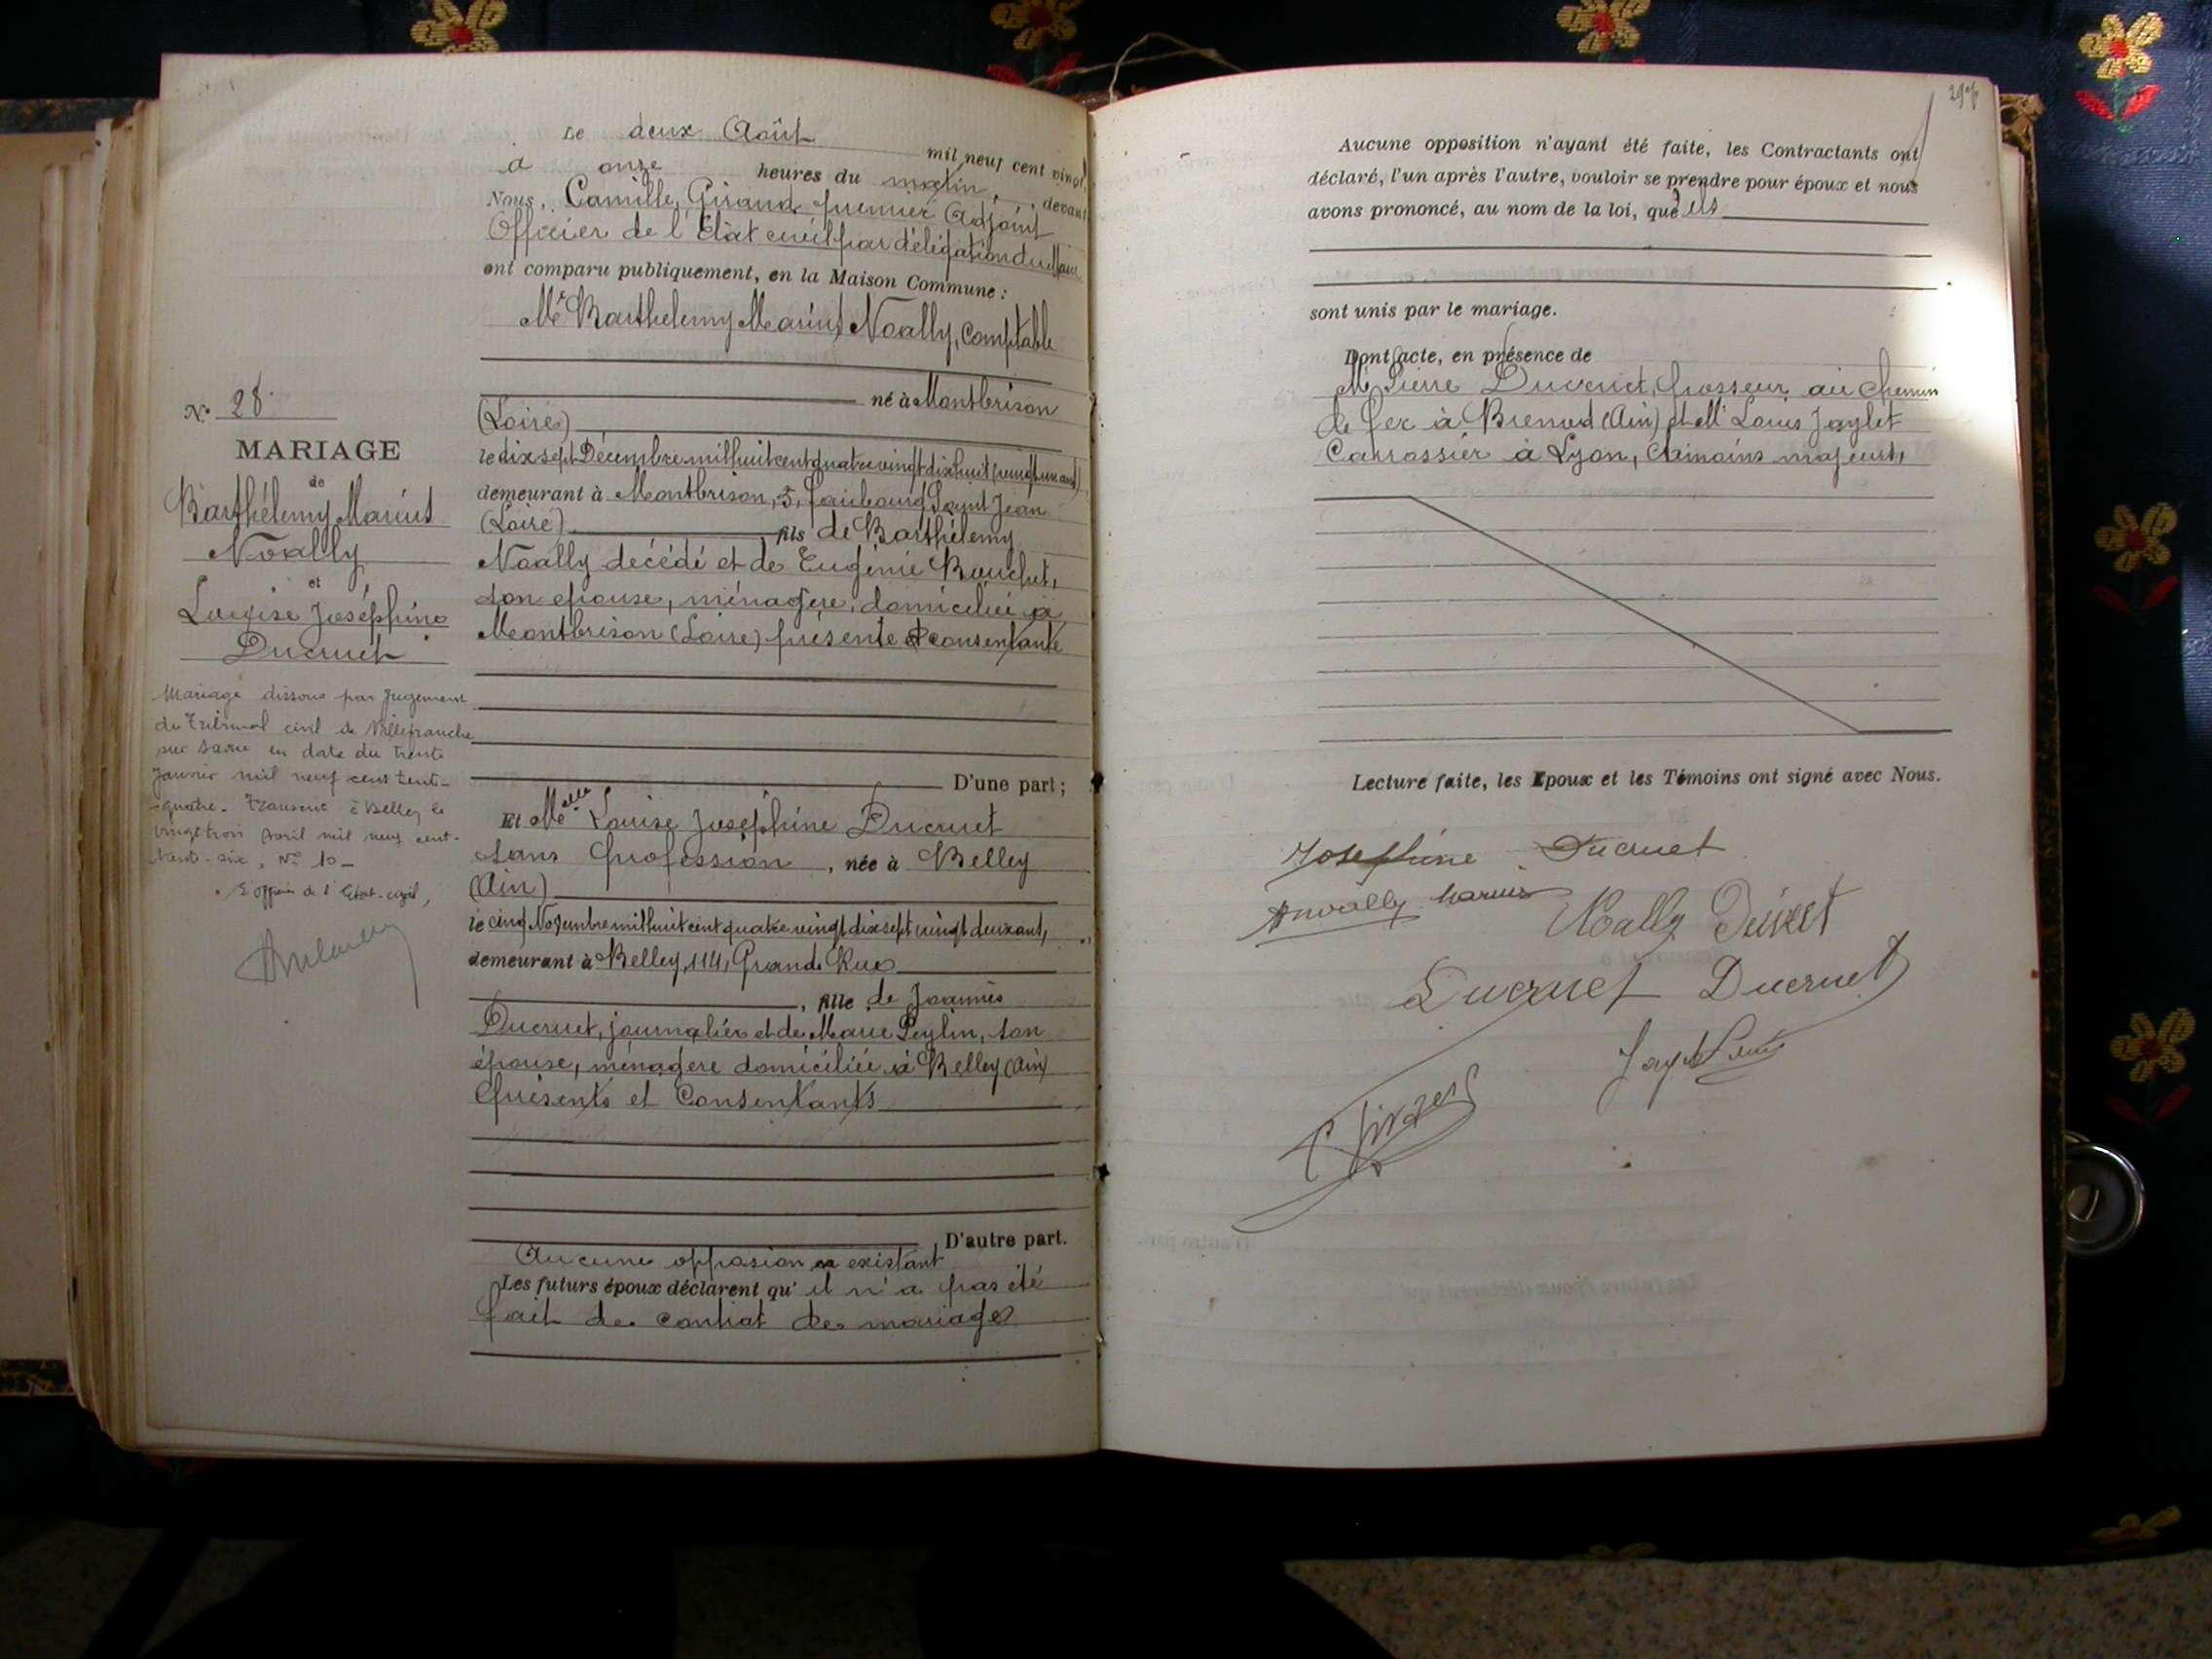 Le deux Août mil neuf cent vingt,
à onze heures du matin, devant
Nous, Camille Giraud premier Adjoint
Officier de l'Etat civil par délégation du Maire
ont comparu publiquement, en la Maison Commune :
Mr Barthelemy Marius Noally, Comptable
né à Montbrison
(Loire)
le dix sept Décembre mil huit cent quatre vingt dix huit (vingt un ans)
demeurant à Montbrison, 5, faubourg Saint Jean
(Loire) fils de Barthélemy
Noally décédé et de Eugénie Bouchet,
son epouse, ménagère, domiciliée à
Montbrison (Loire) présente et consentante
D'une part ;
Et Melle Louise Joséphine Ducruet
sans profession, née à Belley
(Ain)
le cinq Novembre mil huit cent quatre vingt dix sept vingt deux ans,
demeurant à Belley, 114, Grande Rue
, fille de Joannès
Ducruet, journalier et de Marie Peylin, son
épouse, ménagère domiciliée à Belley (Ain)
Présents et Consentants
D'autre part.
Aucune opposion existant
Les futurs époux déclarent qu'il n'a pas été
fait de contrat de mariage
No 28
MARIAGE
de
Barthélemy Marius
Noally
et
Louise Joséphine
Ducruet
Mariage dissous par Jugement
du Tribunal civil de Villefranche
sur Saone en date du trente
Janvier mil neuf cent trente-
-quatre. Transcrit à Belley le
vingt trois Avril mil neuf cent-
trente-six, No 10 -
L'officier de l'Etat-civil,
Aucune opposition n'ayant été faite, les Contractants ont
déclaré, l'un après l'autre, vouloir se prendre pour époux et nous
avons prononcé, au nom de la loi, qu'ils
sont unis par le mariage.
Dont acte, en présence de
Mr Pierre Ducruet, poseur au Chemin
de fer à Brenod (Ain) et Mr Louis Jaylet
Carrossier à Lyon, témoins majeurs,
Lecture faite, les Epoux et les Témoins ont signé avec Nous.
Josephine Ducruet
Noally Marius
Noally
Ducruet Ducruet